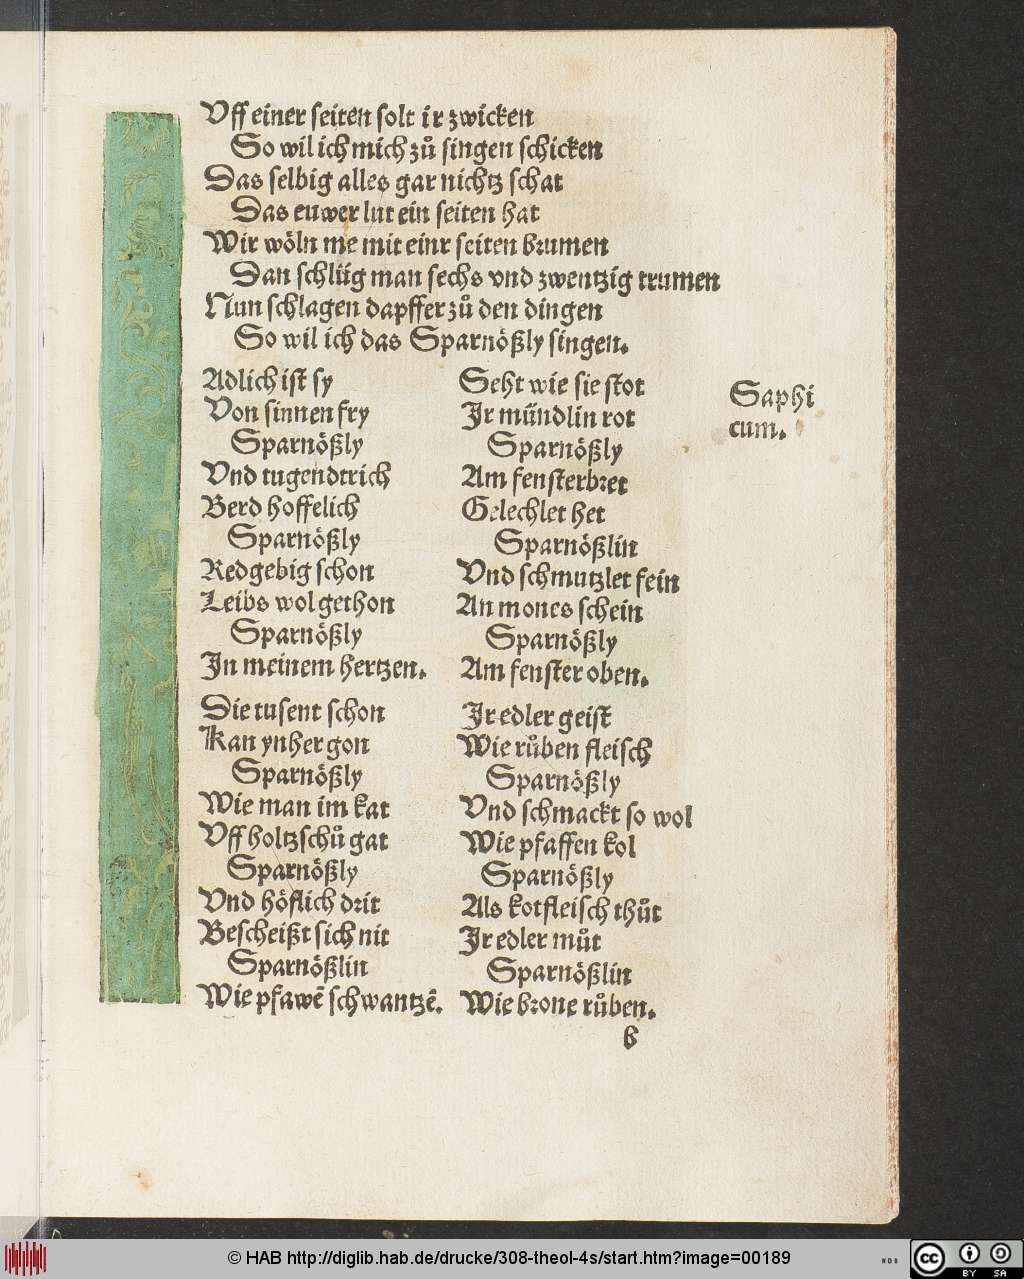 Vff einer seiten solt ir zwicken
So wil ich mich zů singen schicken
Das selbig alles gar nichtz schat
Das euwer lut ein seiten hat
Wir wöln me mit einr seiten brumen
Dan schlüg man sechs vnd zwentzig trumen
Nun schlagen dapffer zů den dingen
So wil ich das Sparnößly singen.
Adlich ist sy
Von sinnen fry
Sparnößly
Vnd tugendtrich
Berd hoffelich
Sparnößly
Redgebig schon
Leibs wol gethon
Sparnößly
In meinem hertzen.
Die tusent schon
Kan ynher gon
Sparnößly
Wie man im kat
Vff holtzschů gat
Sparnößly
Vnd höflich drit
Bescheißt sich nit
Sparnößlin
Wie pfawē schwantzē.
Seht wie sie stot
Ir mündlin rot
Sparnößly
Am fensterbret
Gelechlet het
Sparnößlin
Vnd schmutzlet fein
An mones schein
Sparnößly
Am fenster oben.
Ir edler geist
Wie růben fleisch
Sparnößly
Vnd schmackt so wol
Wie pfaffen kol
Sparnößly
Als kotfleisch thůt
Ir edler můt
Sparnößlin
Wie brone růben.
Saphi
cum.
b
© HAB http://diglib.hab.de/drucke/308-theol-4s/start.htm?image=00189
WDB
cc BY SA